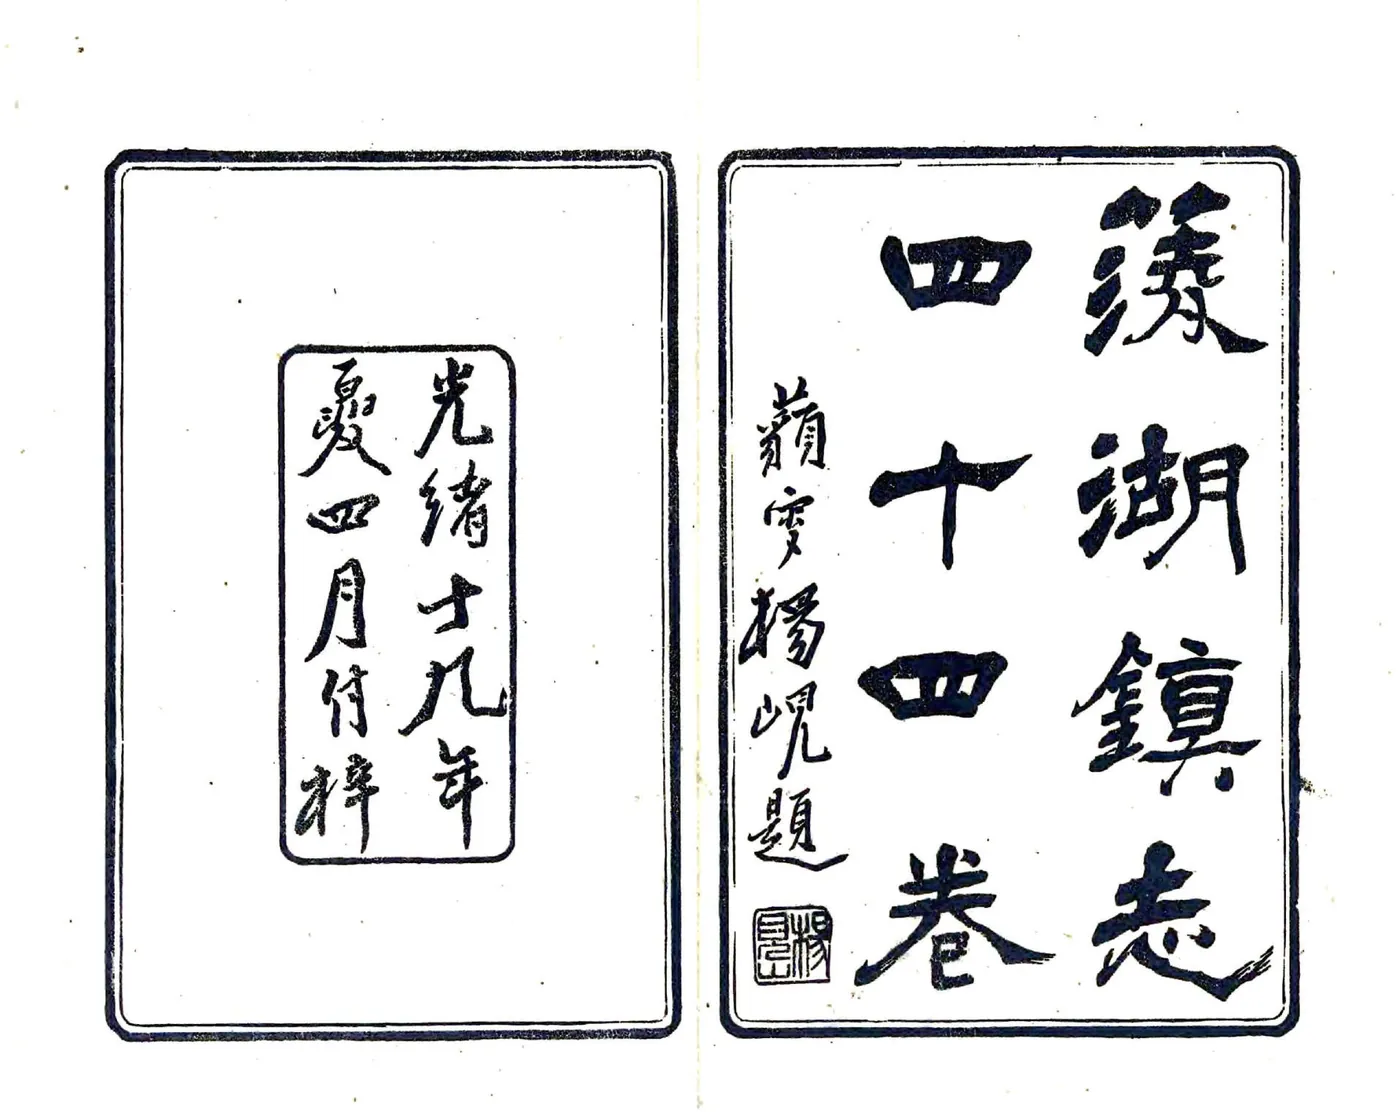 蔆湖鎮志
四十四卷
藐叟楊峴題
楊見山
光緒十九年
夏四月付梓